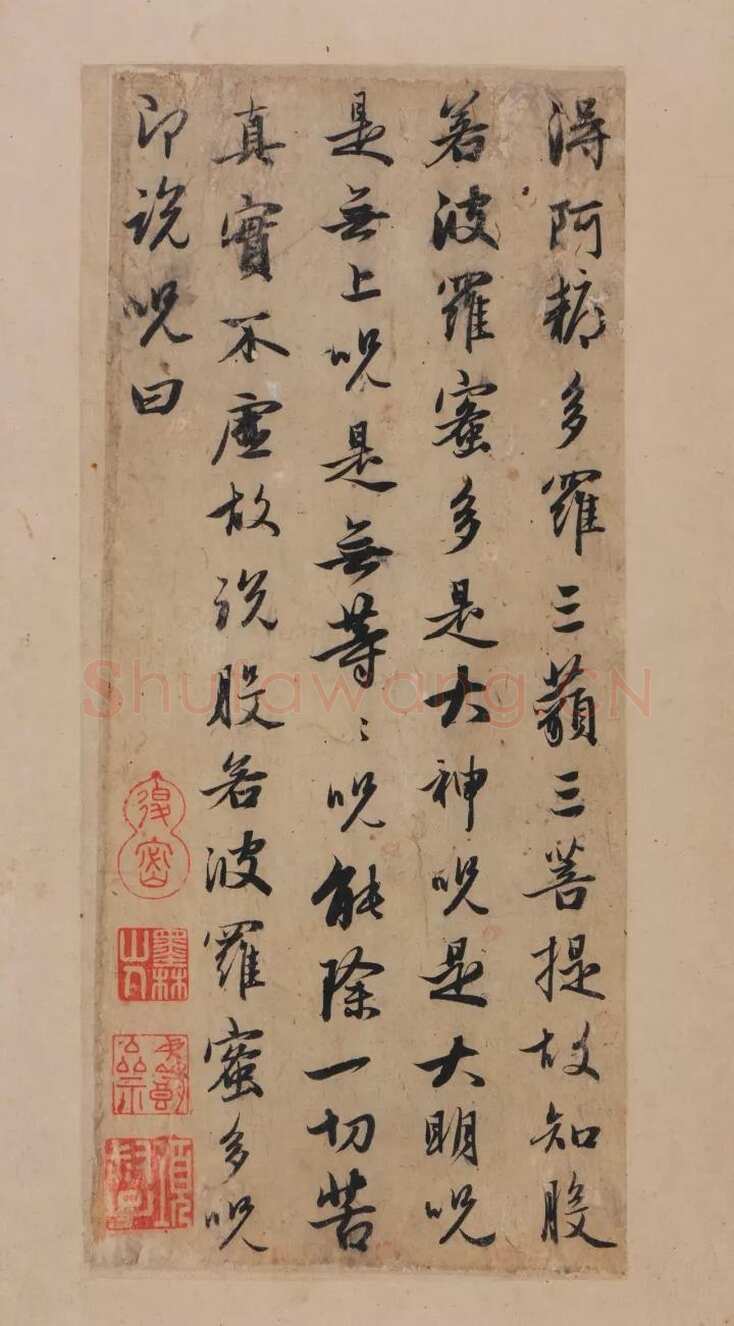 得阿耨多羅三藐三菩提故知般
若波羅蜜多是大神呪是大明呪
是無上呪是無等〻呪能除一切苦
真實不虛故說般若波羅蜜多呪
即說呪曰
退密
墨林山人
Shufawang.CN